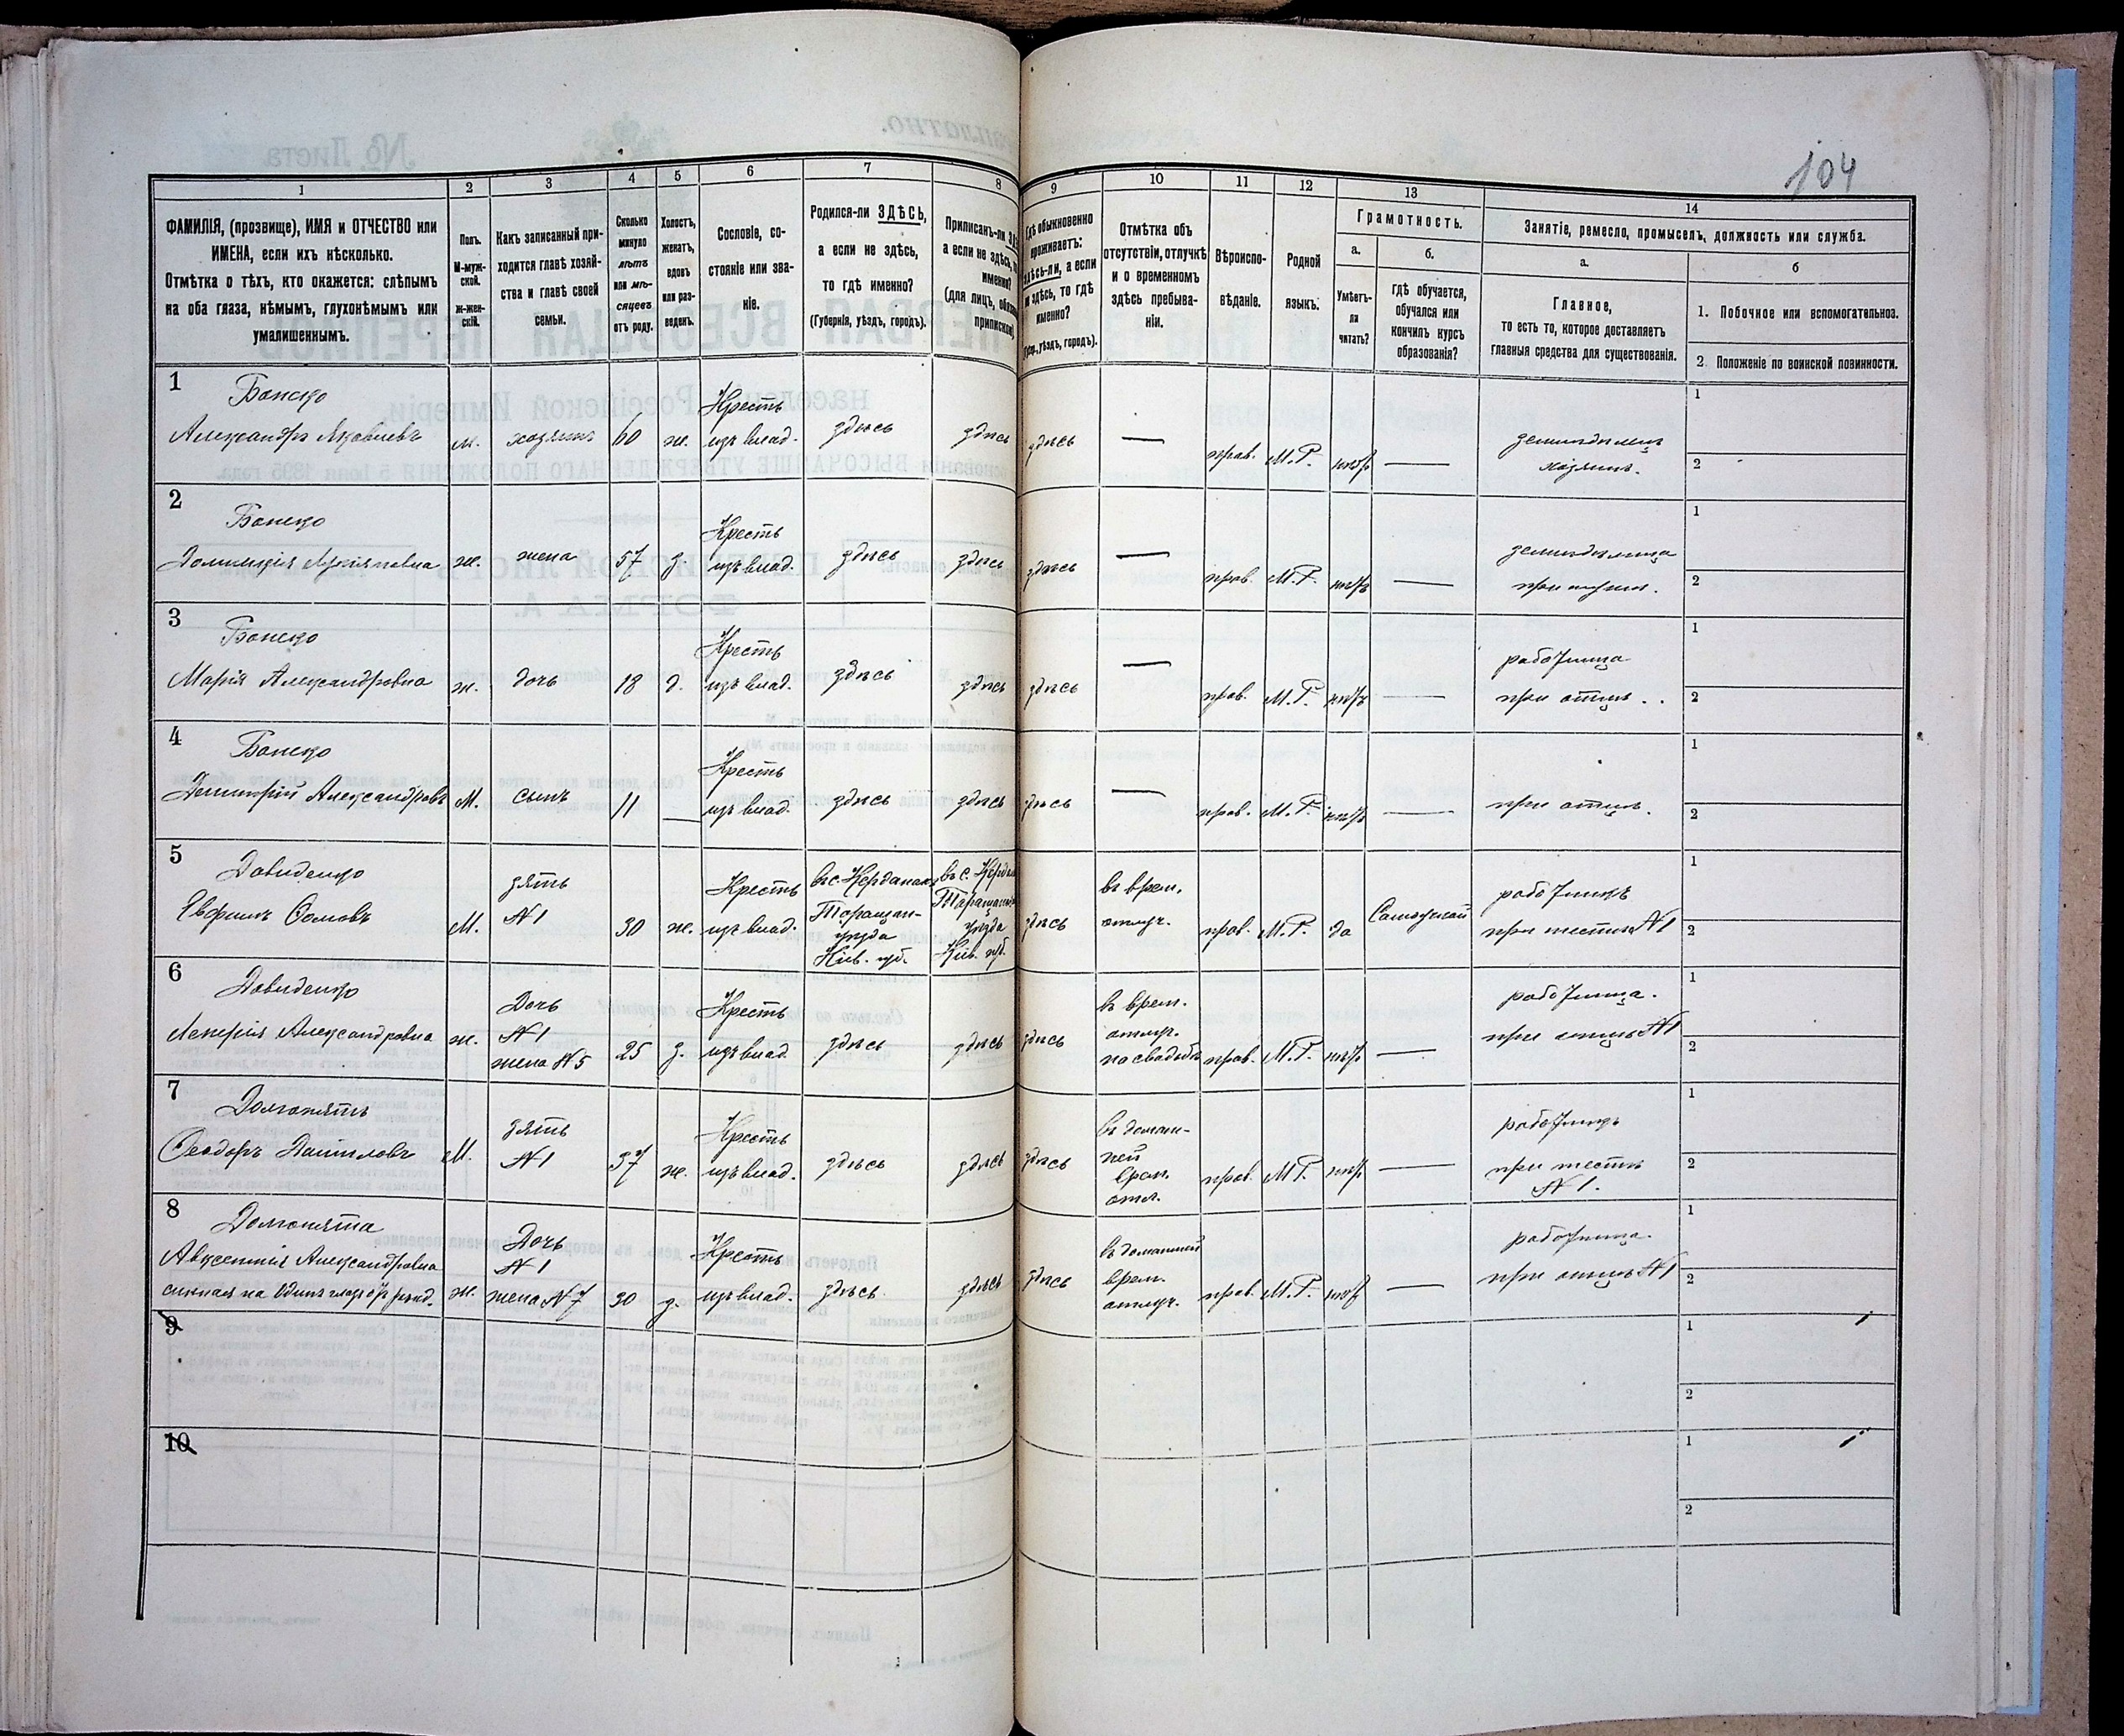 104
1
2
3
4
5
6
7
8
9
10
11
12
13
14
ФАМИЛІЯ, (прозвище), ИМЯ и ОТЧЕСТВО или
ИМЕНА, если ихъ нѣсколько.
Отмѣтка о тѣхъ, кто окажется: слѣпымъ
на оба глаза, нѣмымъ, глухонѣмымъ или
умалишеннымъ.
Полъ.
М-муж-
ской.
ж-жен-
скій.
Какъ записанный при-
ходится главѣ хозяй-
ства и главѣ своей
семьи.
Сколько
минуло
лѣтъ
или мѣ-
сяцевъ
отъ роду.
Холостъ,
женатъ,
вдовъ
или раз-
веденъ.
Сословіе, со-
стояніе или зва-
ніе.
Родился-ли ЗДѢСЬ,
а если не здѣсь,
то гдѣ именно?
(Губернія, уѣздъ, городъ).
Приписанъ-ли
а если не здѣсь,
именно?
(для лицъ,
Гдѣ обыкновенно
проживаетъ:
здѣсь-ли, а если
не здѣсь, то гдѣ
именно?
уѣздъ, городъ).
Отмѣтка объ
отсутствіи, отлучкѣ
и о временномъ
здѣсь пребыва-
ніи.
Вѣроиспо-
вѣданіе.
Родной
языкъ.
Грамотность.
а.
Умѣетъ-
ли
читать?
б.
гдѣ обучается,
обучался или
кончилъ курсъ
образованія?
Занятіе, ремесло, промыселъ, должность или служба.
а.
Главное,
то есть то, которое доставляетъ
главныя средства для существованія.
б
1. Побочное или вспомогательное.
2 Положеніе по воинской повинности.
1
Александръ Яковлевъ
м.
хозяинъ
60
ж.
Кресть
изъ влад.
здѣсь
здѣсь
здѣсь
—
прав.
М.Р.
нѣтъ
—
земледѣлецъ
хозяинъ.
1
2
2
ж.
жена
57
з.
Кресть
изъ влад.
здѣсь
здѣсь
здѣсь
—
прав.
М.Р.
нѣтъ
—
земледѣлица
при мужѣ.
1
2
3
Марія Александровна
ж.
дочь
18
д.
Кресть
изъ влад.
здѣсь
здѣсь
здѣсь
—
прав.
М.Р.
нѣтъ
—
работница
при отцѣ.
1
2
4
Димитрій Александровъ
М.
сынъ
11
—
Кресть
изъ влад.
здѣсь
здѣсь
здѣсь
—
прав.
М.Р.
нѣтъ
—
при отцѣ.
1
2
5
Давиденко
М.
зять
№ 1
30
ж.
Кресть
изъ влад.
въ с.
Таращан-
уѣзда
Кіев. губ.
въ с.
уѣзда
Кіев. губ.
здѣсь
въ врем.
отлуч.
прав.
М.Р.
да
работникъ
при тестѣ № 1
1
2
6
Давиденко
Александровна
ж.
Дочь
№ 1
жена № 5
25
з.
Кресть
изъ влад.
здѣсь
здѣсь
здѣсь
въ врем.
отлуч.
на свадьбѣ
прав.
М.Р.
нѣтъ
—
работница.
при отцѣ № 1
1
2
7
Долгопятъ
Ѳеодоръ Даниловъ
М.
зять
№ 1
37
ж.
Кресть
изъ влад.
здѣсь
здѣсь
здѣсь
въ домаш-
ней
врем.
отл.
прав.
М.Р.
нѣтъ
—
работникъ
при тестѣ
№ 1.
1
2
8
Долгопята
Авксентія Александровна
ж.
Дочь
№ 1
жена № 7
30
з.
Кресть
изъ влад.
здѣсь
здѣсь
здѣсь
въ домашней
врем.
отлуч.
прав.
М.Р.
нѣтъ
—
работница.
при отцѣ № 1
1
2
9
1
2
10
1
2